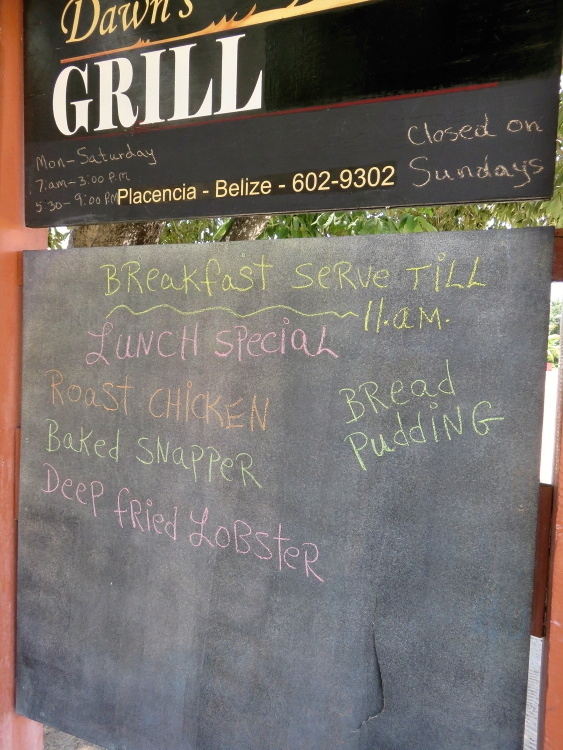 Dawn's
GRILL
Mon-Saturday
7:am-3:00 P.M
5:30-9:00 PM
Closed on
Sundays
Placencia - Belize - 602-9302
BReakfast SeRVe TiLL
11.aM.
LUNCH SPeciaL
Roast CHiCKEN
Baked SNappeR
Deep fRied LoBsteR
BRead
PuddiNG